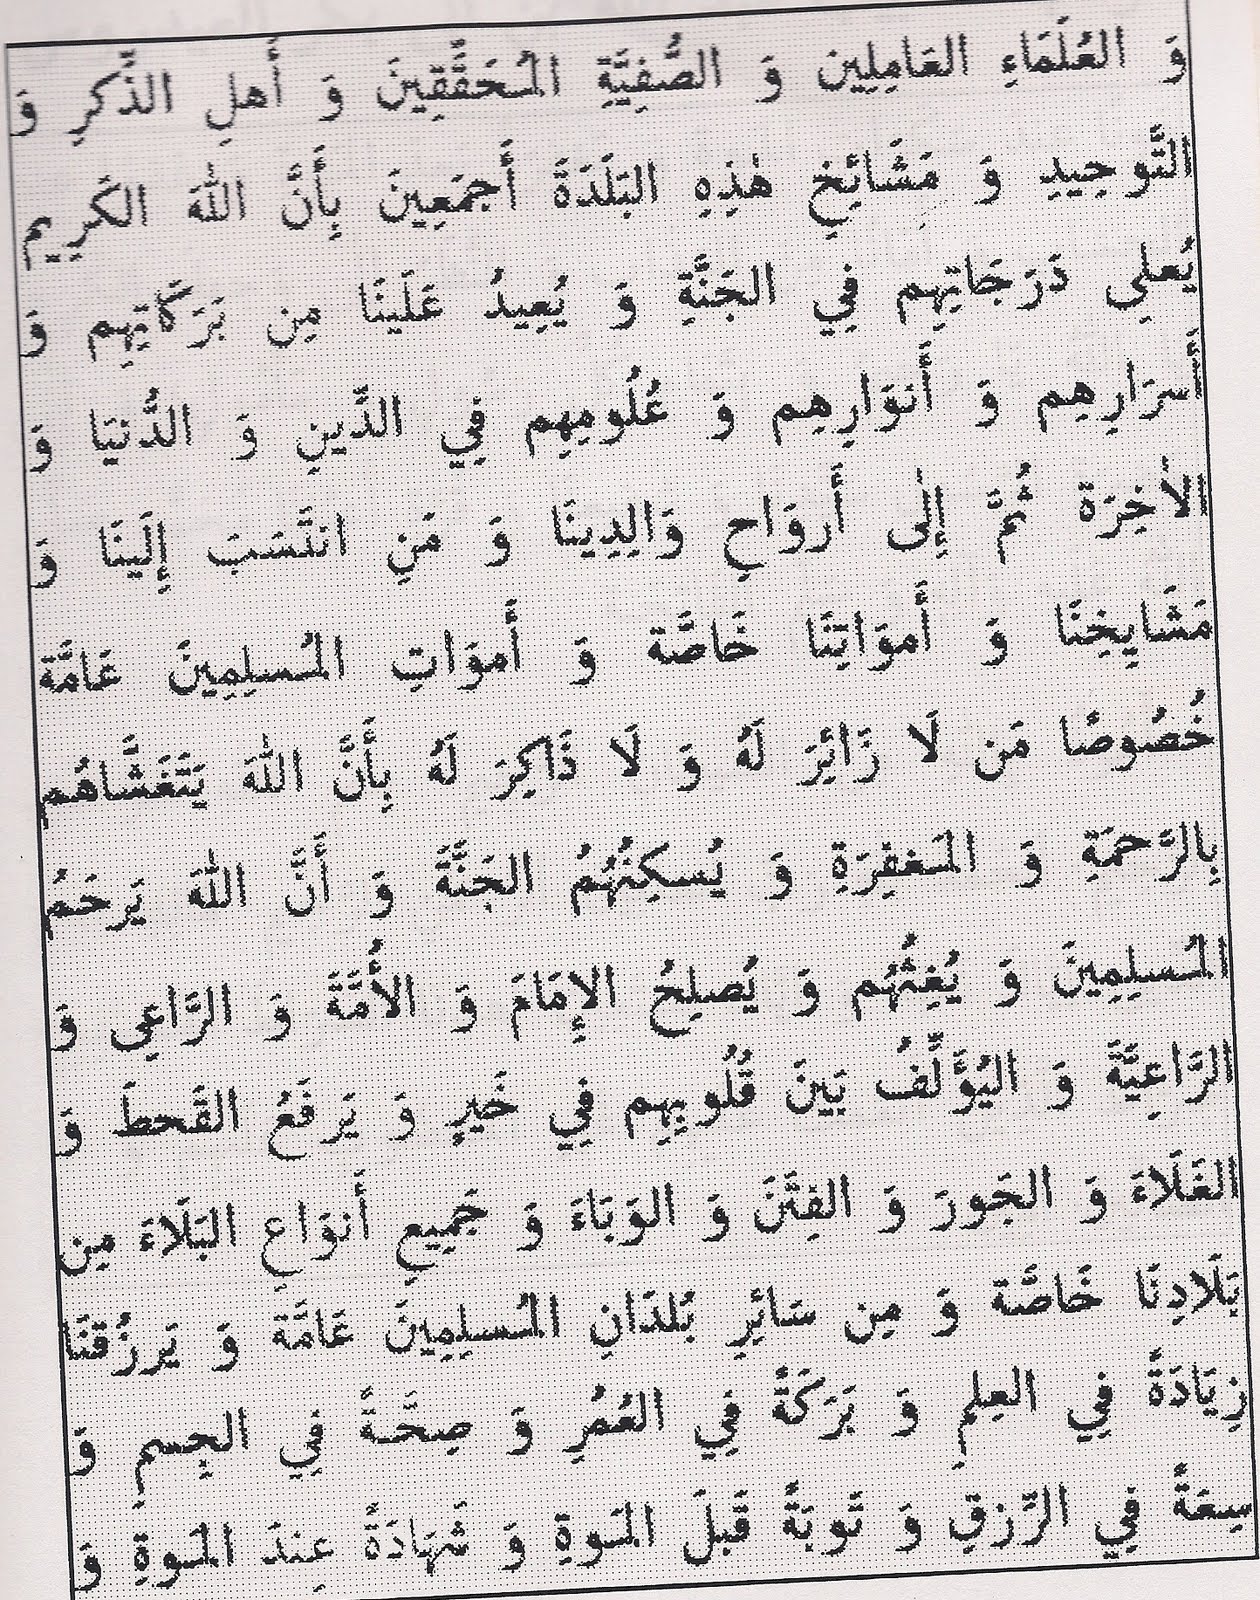 وَ العُلَمَاءِ العَامِلِين وَ الصُّفِيَّةِ المُحَقَّقِينَ وَ أَهلِ الذِّكرِ وَ
التَّوحِيدِ وَ مَشَائِخِ هٰذِهِ البَلَدَةَ أَجمَعِينَ بِأَنَّ اللهَ الكَرِيم
يُعلِي دَرَجَاتِهِم فِي الجَنَّةِ وَ يُعِيدُ عَلَينَا مِن بَرَكَاتِهِم وَ
أَسرَارِهِم وَ أَنوَارِهِم وَ عُلُومِهِم فِي الدِّينِ وَ الدُّنيَا وَ
الاٰخِرَة ثُمَّ إِلٰى أَروَاحِ وَالِدِينَا وَ مَنِ انتَسَبَ إِلَينَا وَ
مَشَايِخِنَا وَ أَموَاتِنَا خَاصَّة وَ أَموَاتِ المُسلِمِينَ عَامَّة
خُصُوصًا مَن لَا زَائِرَ لَهُ وَ لَا ذَاكِرَ لَهُ بِأَنَّ اللهَ يَتَغَشَّاهُم
بِالرَّحمَةِ وَ المَغفِرَةِ وَ يُسكِنُهُمُ الجَنَّةَ وَ أَنَّ اللهَ يَرحَمُ
المُسلِمِينَ وَ يُغِثُهُم وَ يُصلِحُ الإِمَامَ وَ الأُمَّةَ وَ الرَّاعِي وَ
الرَّاعِيَّةَ وَ اليُؤَلِّفُ بَينَ قُلُوبِهِم فِي خَيرٍ وَ يَرفَعُ القَحطَ وَ
الغَلَاءَ وَ الجَورَ وَ الفِتَنَ وَ الوَبَاءَ وَ جَمِيعِ أَنوَاعِ البَلَاءَ مِن
بَلَادِنَا خَاصَّة وَ مِن سَائِرِ بُلدَانِ المُسلِمِينَ عَامَّة وَ يَرزُقنَا
زِيَادَةً فِي العِلمِ وَ بَرَكَةً فِي العُمُرِ وَ صِحَّةً فِي الجِسمِ وَ
سِعَةً فِي الرِّزقِ وَ تَوبَةً قَبلَ المَوةِ وَ شَهَادَةً عِندَ المَوةِ وَ